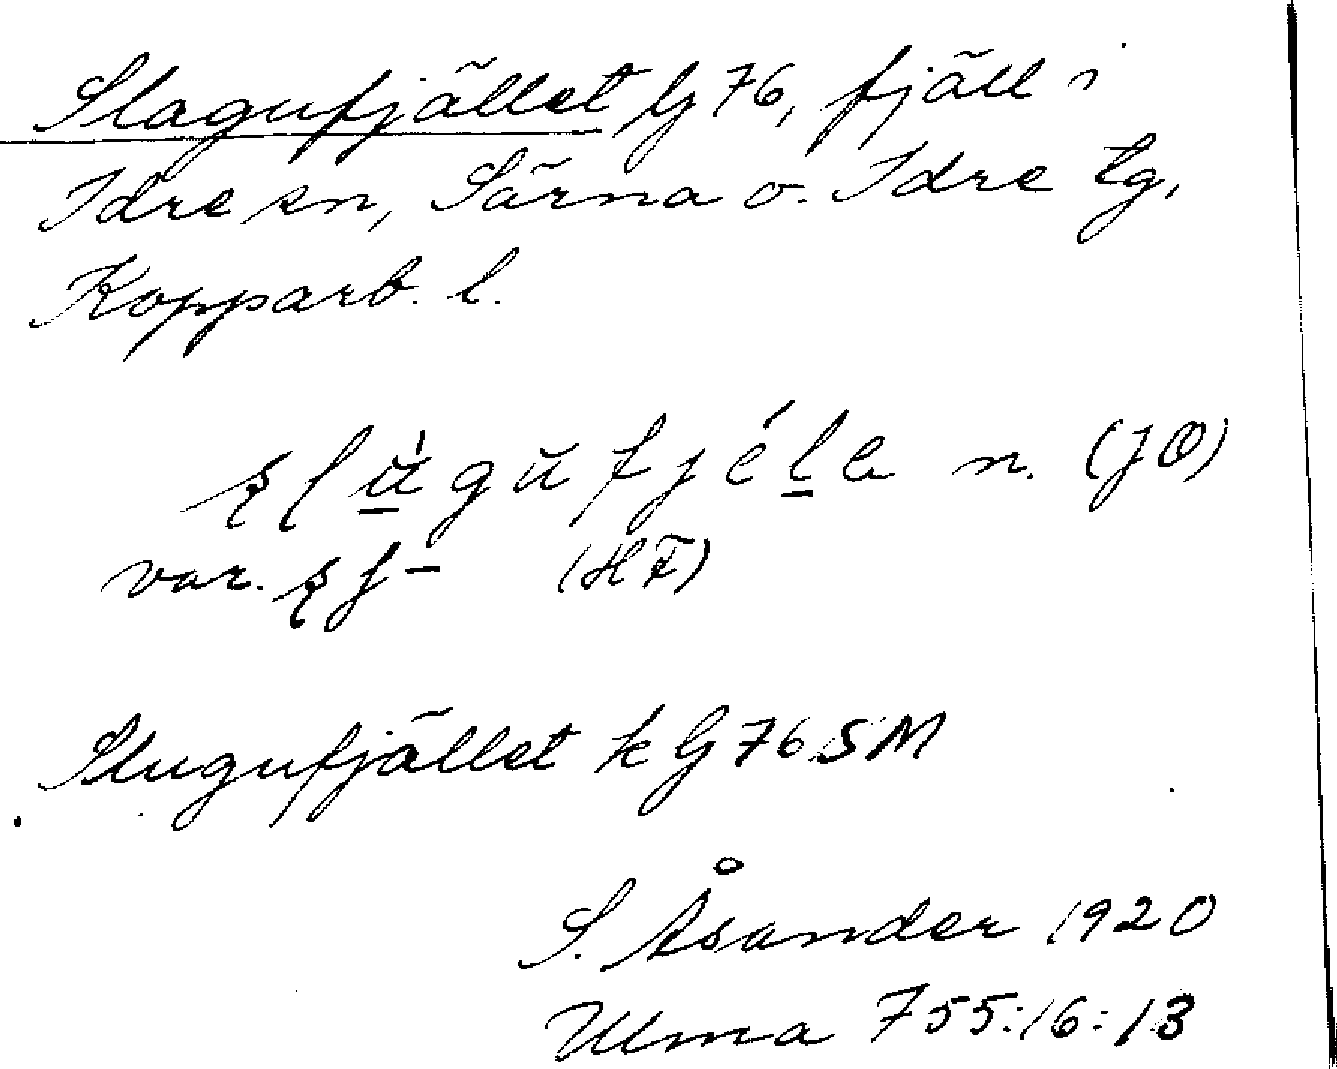 Slagufjället G 76, fjäll i
Idre sn, Särna o. Idre tg,
Kopparb. l.
n. (JÖ)
var. (HF)
Slugufjället k G 76 SM
S. Åsander 1920
Ulma 755:16:13